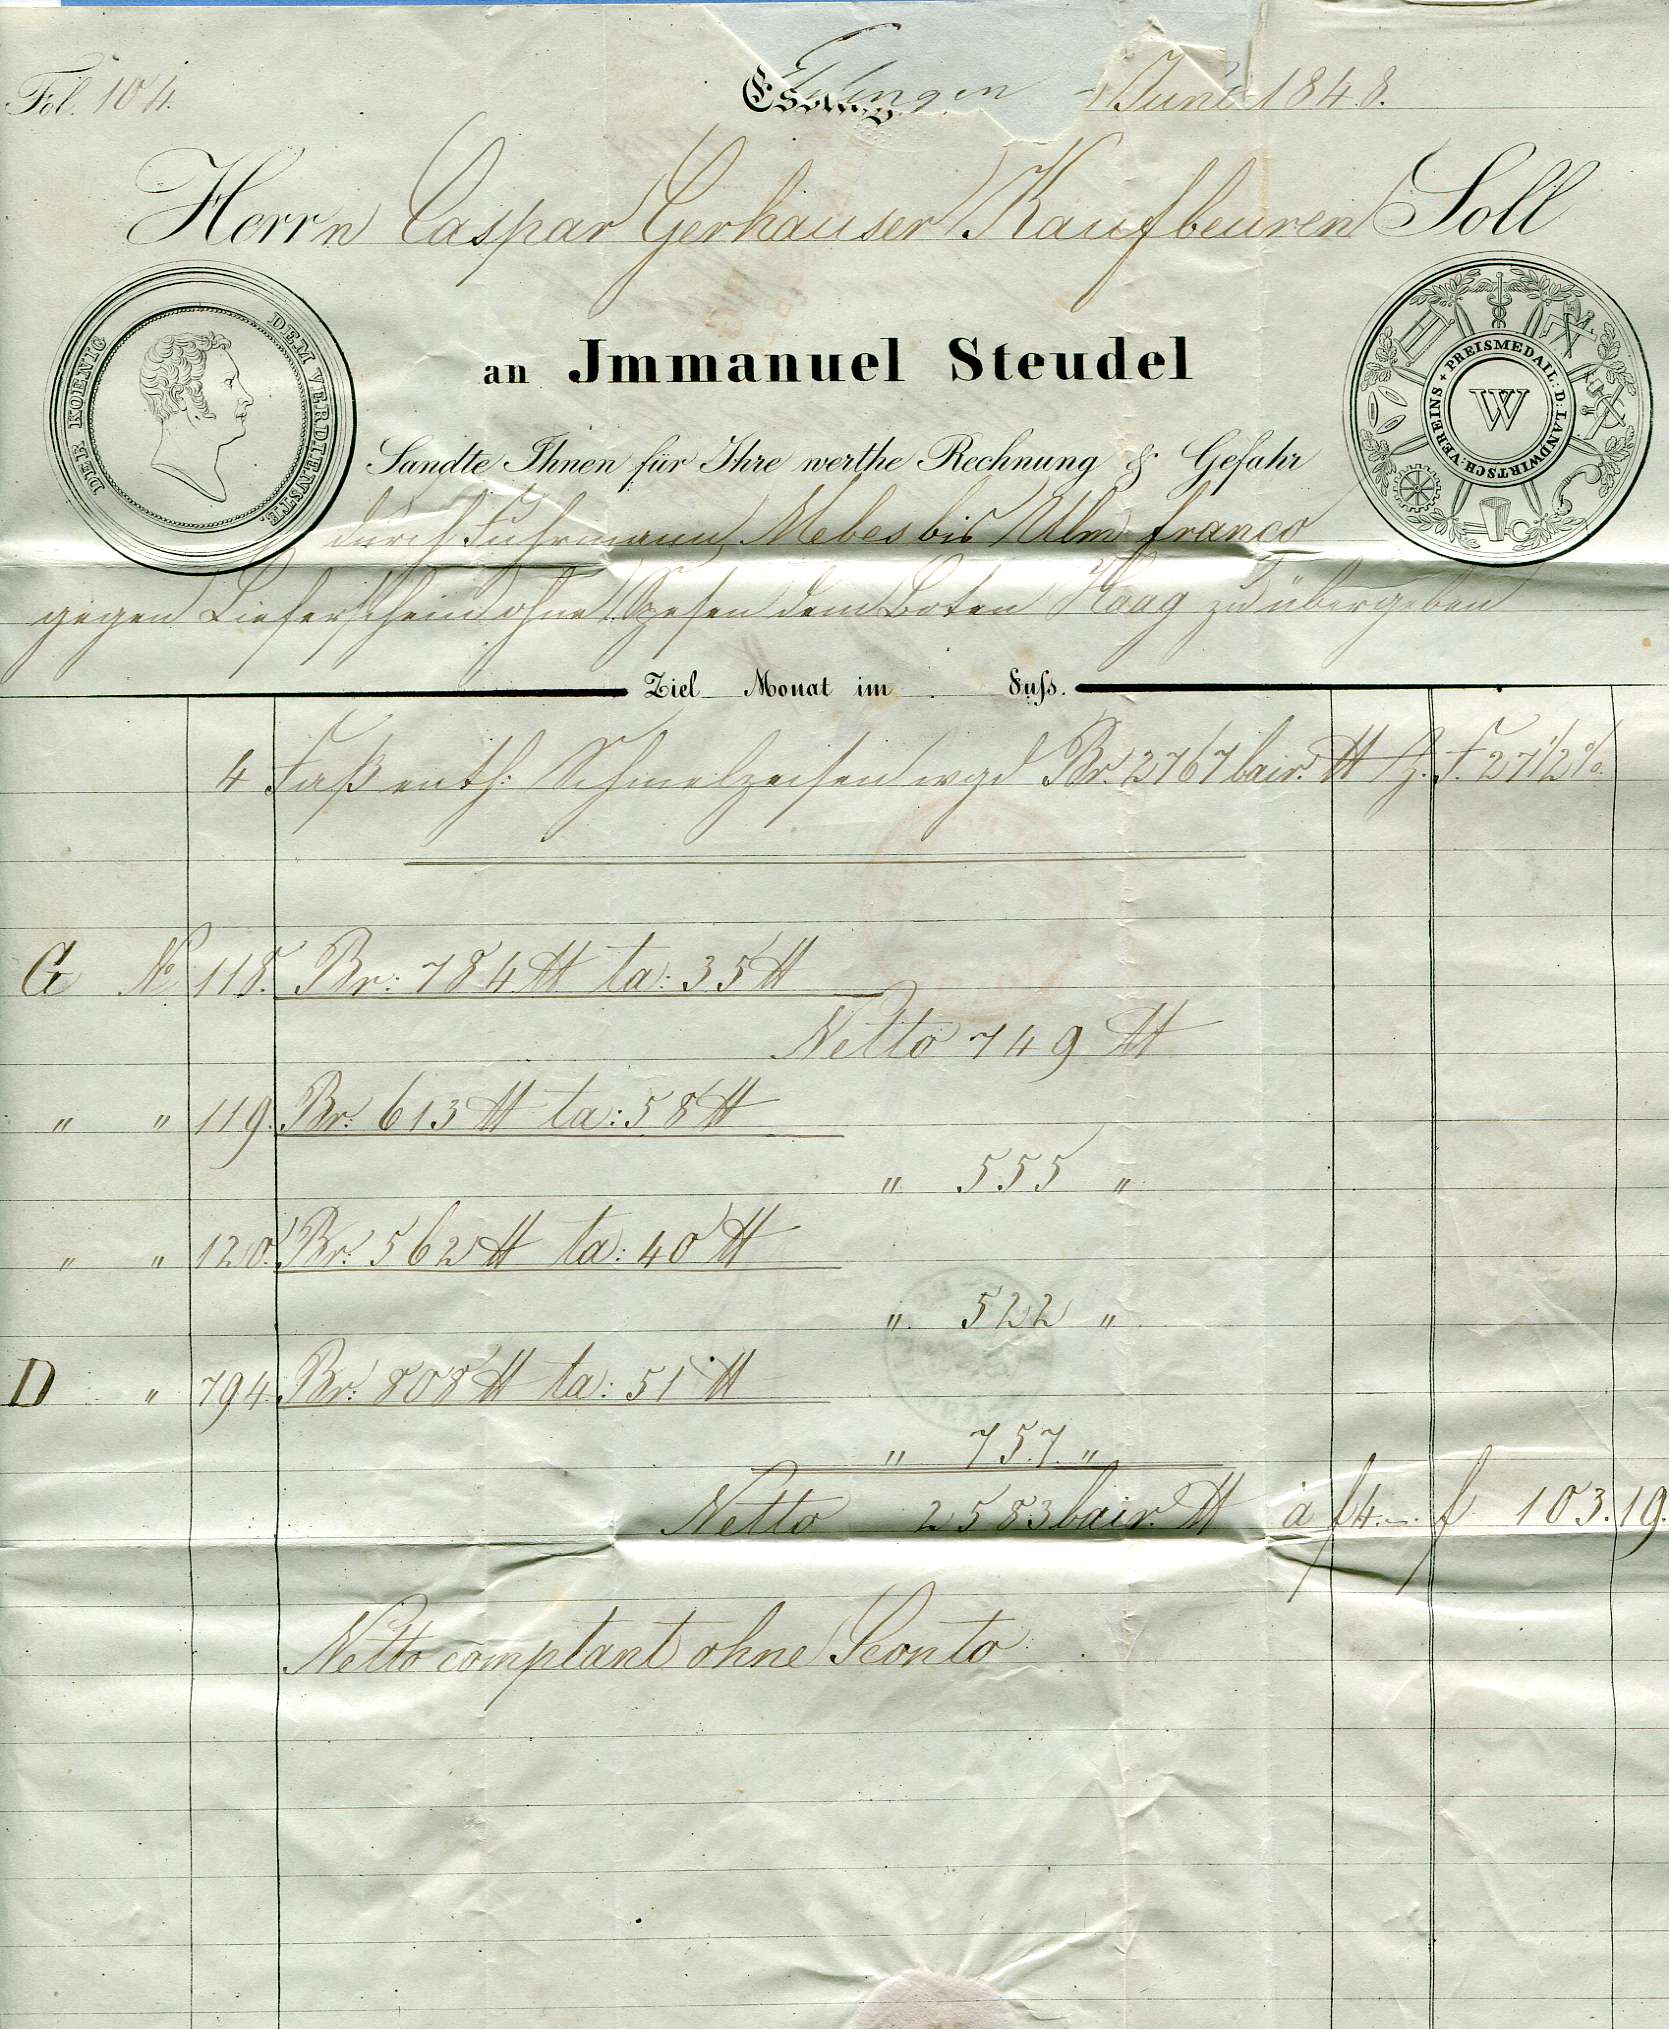 Fol. 104.
Esslingen Juni 1848.
Herrn Caspar Gerhauser Kaufbeuren Soll
DER KOENIG DEM VERDIENSTE.
PREISMEDAIL: D: LANDWIRTSCH: VEREINS +
W
an Jmmanuel Steudel
Sandte Ihnen für Ihre werthe Rechnung & Gefahr
durch Fuhrmann Mebes bis Ulm franco
gegen Lieferschein ohne Spesen dem Boten Haag zu übergeben
Ziel Monat im Fuſs.
4 Faß enth: Schmelzeisen wgd Br. 2767 bair. ℔ f. 27 1/2 %.
G No 118. Br: 784 ℔ ta: 35 ℔
Netto 749 ℔
" " 119. Br: 613 ℔ ta: 58 ℔
" 555 "
" " 120. Br: 562 ℔ ta: 40 ℔
" 522 "
D " 794. Br: 808 ℔ ta: 51 ℔
" 757. "
Netto 2583 bair. ℔ à f 4.–. f 103.19.
Netto comptant ohne Sconto